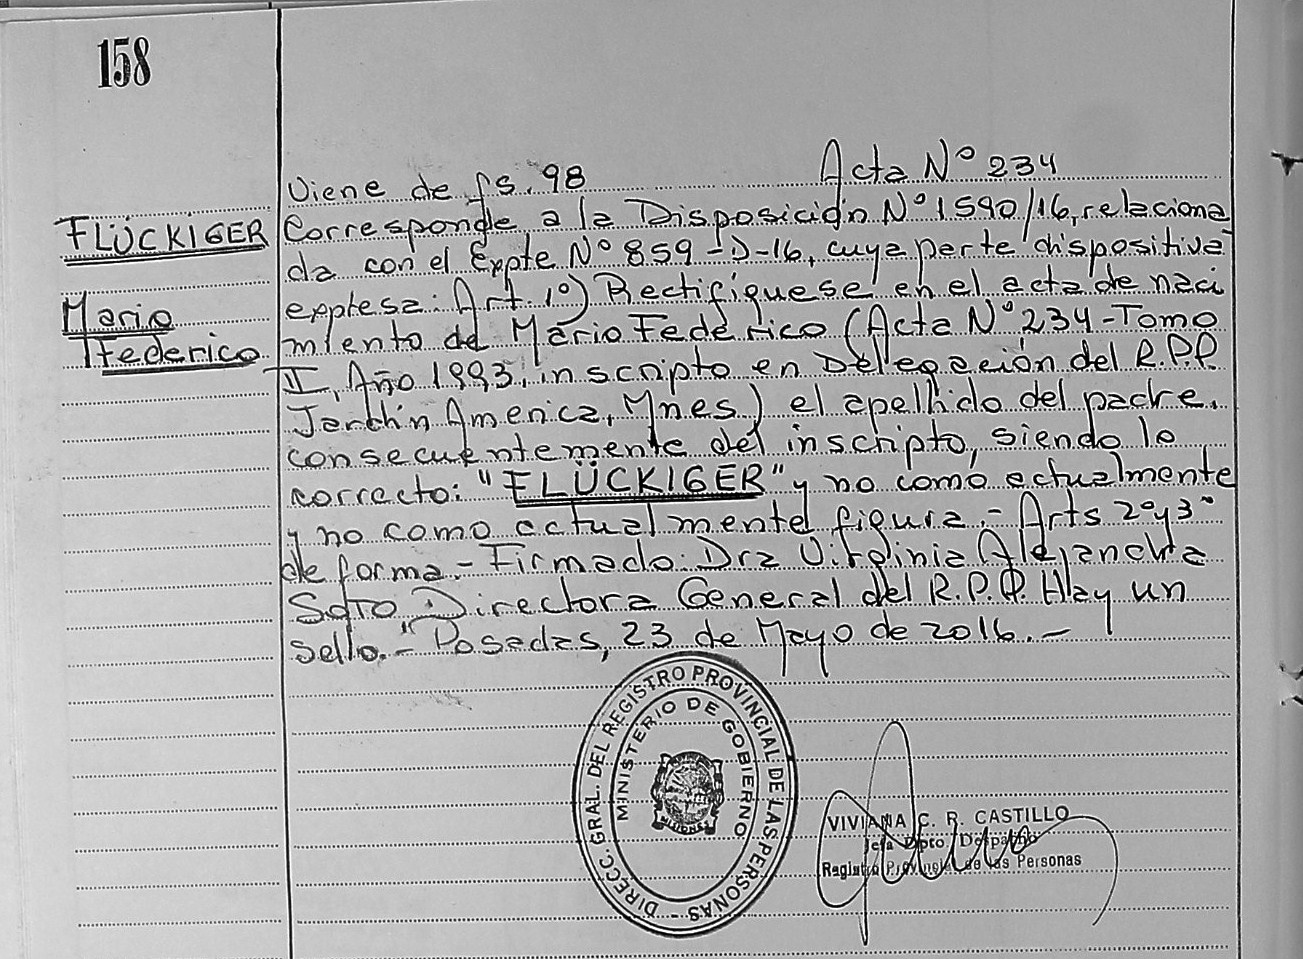 158
Viene de fs. 98 Acta Nº 234
FLÜCKIGER
Mario
Federico
Corresponde a la Disposición Nº 1590/16, relaciona
da con el Expte Nº 859-D-16, cuya parte dispositiva
expresa: Art. 1º) Rectifíquese en el acta de naci
miento de Mario Federico (Acta Nº 234-Tomo
II, Año 1993, inscripto en Delegación del R.P.P.
Jardín America, Mnes.) el apellido del padre,
consecuentemente del inscripto, siendo lo
correcto: "FLÜCKIGER" y no como actualmente
y no como actualmente figura.- Arts 2º y 3º
de forma.- Firmado: Dra Virginia Alejandra
Soto, Directora General del R.P.P. Hay un
sello.- Posadas, 23 de Mayo de 2016.-
DIRECC. GRAL. DEL REGISTRO PROVINCIAL DE LAS PERSONAS
MINISTERIO DE GOBIERNO
MISIONES
VIVIANA C. R. CASTILLO
Jefa Dpto Despacho
Registro Provincial de las Personas